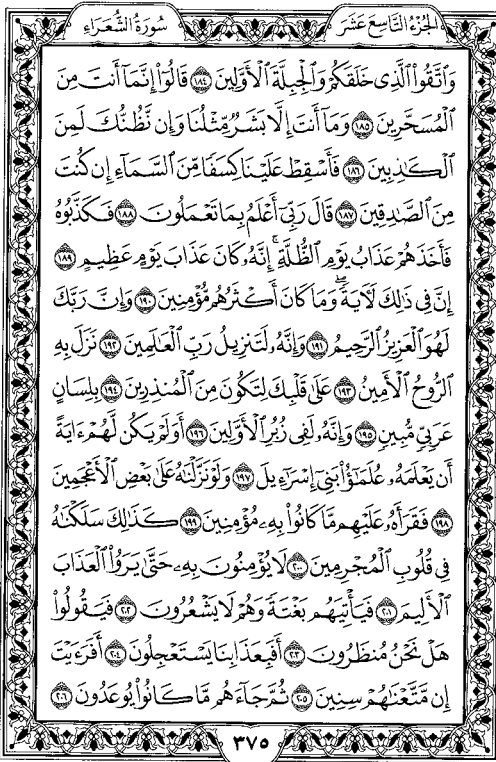 سُورَةُ الشُّعَرَاءِ
الجُزْءُ التَّاسِعَ عَشَرَ
وَٱتَّقُواْ ٱلَّذِى خَلَقَكُمْ وَٱلْجِبِلَّةَ ٱلْأَوَّلِينَ ١٨٤ قَالُوٓاْ إِنَّمَآ أَنتَ مِنَ
ٱلْمُسَحَّرِينَ ١٨٥ وَمَآ أَنتَ إِلَّا بَشَرٌ مِّثْلُنَا وَإِن نَّظُنُّكَ لَمِنَ
ٱلْكَٰذِبِينَ ١٨٦ فَأَسْقِطْ عَلَيْنَا كِسَفًا مِّنَ ٱلسَّمَآءِ إِن كُنتَ
مِنَ ٱلصَّٰدِقِينَ ١٨٧ قَالَ رَبِّىٓ أَعْلَمُ بِمَا تَعْمَلُونَ ١٨٨ فَكَذَّبُوهُ
فَأَخَذَهُمْ عَذَابُ يَوْمِ ٱلظُّلَّةِ ۚ إِنَّهُۥ كَانَ عَذَابَ يَوْمٍ عَظِيمٍ ١٨٩
إِنَّ فِى ذَٰلِكَ لَءَايَةً ۖ وَمَا كَانَ أَكْثَرُهُم مُّؤْمِنِينَ ١٩٠ وَإِنَّ رَبَّكَ
لَهُوَ ٱلْعَزِيزُ ٱلرَّحِيمُ ١٩١ وَإِنَّهُۥ لَتَنزِيلُ رَبِّ ٱلْعَٰلَمِينَ ١٩٢ نَزَلَ بِهِ
ٱلرُّوحُ ٱلْأَمِينُ ١٩٣ عَلَىٰ قَلْبِكَ لِتَكُونَ مِنَ ٱلْمُنذِرِينَ ١٩٤ بِلِسَانٍ
عَرَبِىٍّ مُّبِينٍ ١٩٥ وَإِنَّهُۥ لَفِى زُبُرِ ٱلْأَوَّلِينَ ١٩٦ أَوَلَمْ يَكُن لَّهُمْ ءَايَةً
أَن يَعْلَمَهُۥ عُلَمَٰٓؤُاْ بَنِىٓ إِسْرَٰٓءِيلَ ١٩٧ وَلَوْ نَزَّلْنَٰهُ عَلَىٰ بَعْضِ ٱلْأَعْجَمِينَ
١٩٨ فَقَرَأَهُۥ عَلَيْهِم مَّا كَانُواْ بِهِۦ مُؤْمِنِينَ ١٩٩ كَذَٰلِكَ سَلَكْنَٰهُ
فِى قُلُوبِ ٱلْمُجْرِمِينَ ٢٠٠ لَا يُؤْمِنُونَ بِهِۦ حَتَّىٰ يَرَوُاْ ٱلْعَذَابَ
ٱلْأَلِيمَ ٢٠١ فَيَأْتِيَهُم بَغْتَةً وَهُمْ لَا يَشْعُرُونَ ٢٠٢ فَيَقُولُواْ
هَلْ نَحْنُ مُنظَرُونَ ٢٠٣ أَفَبِعَذَابِنَا يَسْتَعْجِلُونَ ٢٠٤ أَفَرَءَيْتَ
إِن مَّتَّعْنَٰهُمْ سِنِينَ ٢٠٥ ثُمَّ جَآءَهُم مَّا كَانُواْ يُوعَدُونَ ٢٠٦
٣٧٥